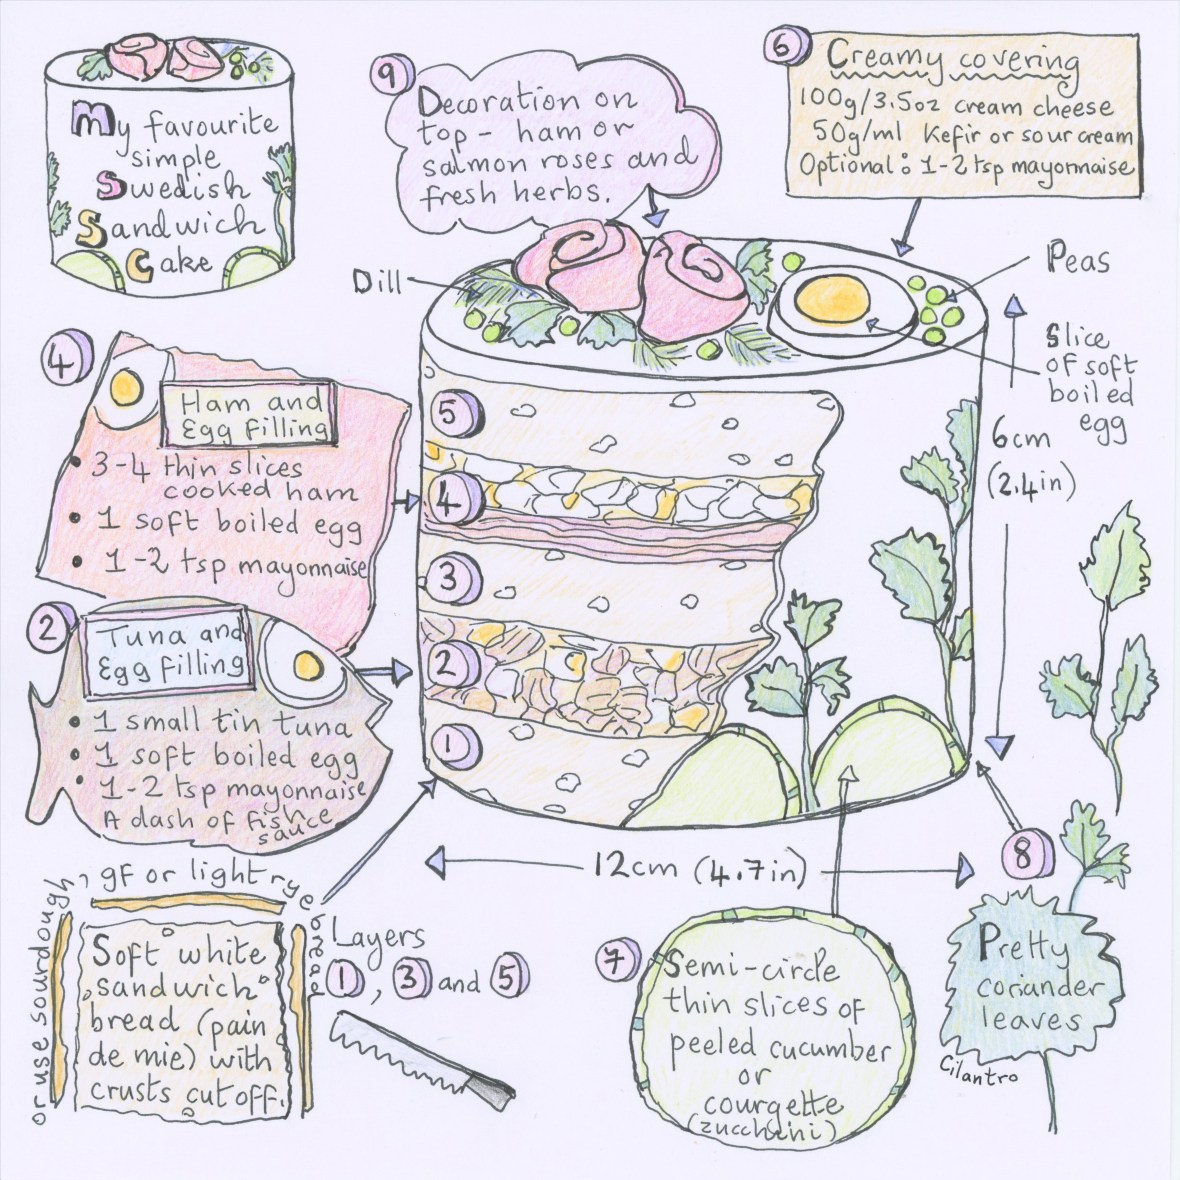 My favourite
simple
Swedish
Sandwich
Cake
9
Decoration on
top - ham or
salmon roses and
fresh herbs.
6
Creamy covering
100g/3.5oz cream cheese
50g/ml Kefir or sour cream
Optional: 1-2 tsp mayonnaise
Dill
Peas
Slice
of soft
boiled
egg
6cm
(2.4in)
4
Ham and
Egg Filling
• 3-4 thin slices
cooked ham
• 1 soft boiled egg
• 1-2 tsp mayonnaise
2
Tuna and
Egg Filling
• 1 small tin tuna
• 1 soft boiled egg
• 1-2 tsp mayonnaise
A dash of fish
sauce
5
4
3
2
1
12cm (4.7in)
or use sourdough, gf or light rye bread
Soft white
sandwich
bread (pain
de mie) with
crusts cut off.
Layers
1, 3 and 5
7
Semi-circle
thin slices of
peeled cucumber
or
courgette
(zucchini)
8
Pretty
coriander
leaves
Cilantro